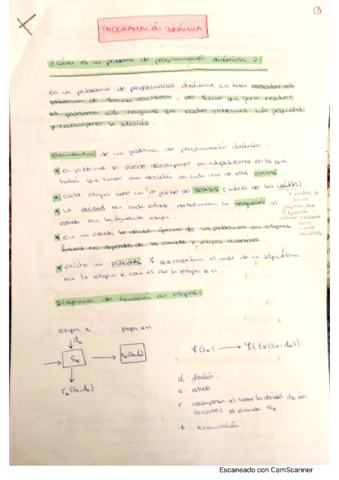 PROGRAMACIÓN DINÁMICA
¿Cómo es un problema de programación dinámica?
en un problema de programación dinámica se basa resolver el
problema de forma recursiva, de forma que para resolver
el problema sólo tengamos que resolver problemas más pequeños
y recomponer la solución.
Elementos de un problema de programación dinámica.
el problema se puede descomponer en subproblemas en los que
habrá que tomar una decisión en cada uno de ellos ETAPAS
cada etapa tiene un nº posible de ESTADOS
la decisión en cada estado determina la transición al
estado en la siguiente etapa.
en un estado la decisión óptima de los problemas en etapas
futuras no depende de los estados y etapas anteriores
existe una FUNCIÓN f que recursiva el valor de un subproblema
en la etapa k con el de la etapa k+1.
Diagrama de transición de etapas:
etapa k
etapa k+1
dk
Sk
rk(Sk,dk)
tk(Sk,dk)
f(Sk) → f(tk(Sk,dk))
d: decisión.
s: estado.
r: recompensa al tomar la decisión dk en
el estado Sk
t: transición.
Escaneado con CamScanner